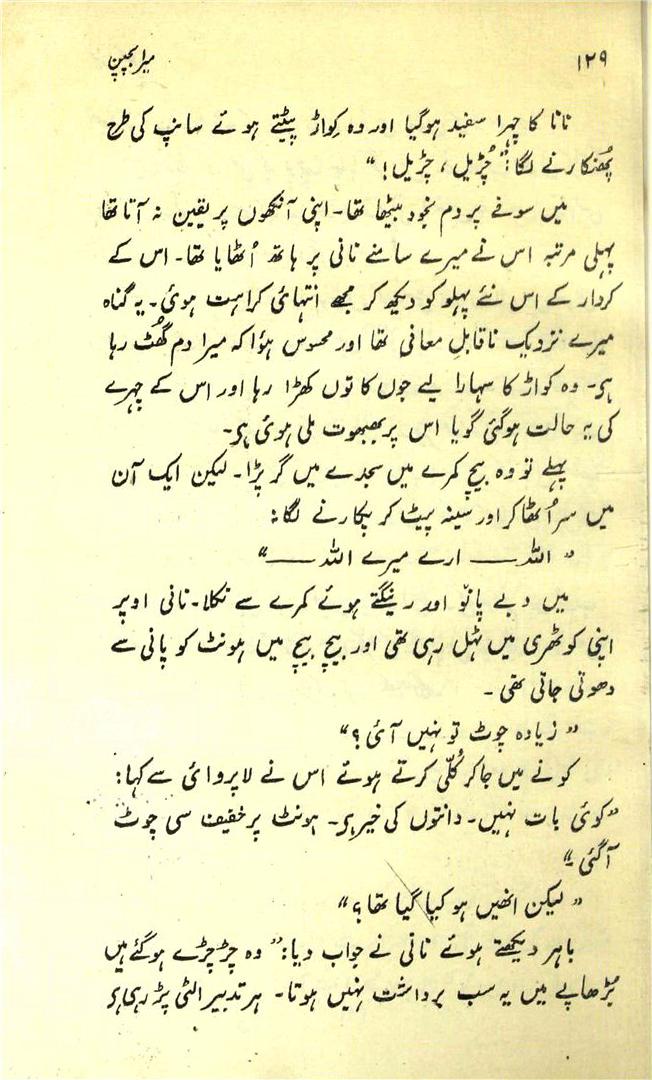 ۱۲۹ میرا بچپن
نانا کا چہرا سفید ہوگیا اور وہ کِواڑ پیٹتے ہوئے سانپ کی طرح
پھُنکارنے لگا: ”چُڑیل، چڑیل!“
میں سوفے پر دم بخود بیٹھا تھا۔ اپنی آنکھوں پر یقین نہ آتا تھا
پہلی مرتبہ اس نے میرے سامنے نانی پر ہاتھ اُٹھایا تھا۔ اس کے
کردار کے اس نئے پہلو کو دیکھ کر مجھے انتہائی کراہت ہوئی۔ یہ گناہ
میرے نزدیک ناقابلِ معافی تھا اور محسوس ہؤا کہ میرا دم گھُٹ رہا
ہی۔ وہ کواڑ کا سہارا لیے جوں کا توں کھڑا رہا اور اس کے چہرے
کی یہ حالت ہوگئی گویا اس پر بھبھوت ملی ہوئی ہی۔
پہلے تو وہ بیچ کمرے میں سجدے میں گر پڑا۔ لیکن ایک آن
میں سر اُٹھا کر اور سینہ پیٹ کر پکارنے لگا:
”اللہ —— ارے میرے اللہ ——“
میں دبے پانو اور رینگتے ہوئے کمرے سے نکلا۔ نانی اوپر
اپنی کوٹھری میں ٹہل رہی تھی اور بیچ بیچ میں ہونٹ کو پانی سے
دھوتی جاتی تھی۔
”زیادہ چوٹ تو نہیں آئی؟“
کونے میں جاکر کُلّی کرتے ہوئے اس نے لاپروائی سے کہا:
”کوئی بات نہیں۔ دانتوں کی خیر ہی۔ ہونٹ پر خفیف سی چوٹ
آگئی۔“
”لیکن انھیں ہو کیا گیا تھا؟“
باہر دیکھتے ہوئے نانی نے جواب دیا: ”وہ چڑچڑے ہوگئے ہیں
بُڑھاپے میں یہ سب برداشت نہیں ہوتا۔ ہر تدبیر الٹی پڑ رہی ہی